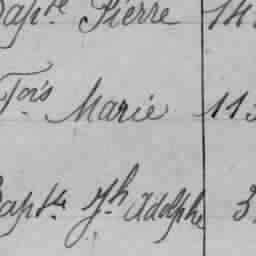 Bapte Pierre 14
Fois Marie 113
Bapte Jh Adolphe 3